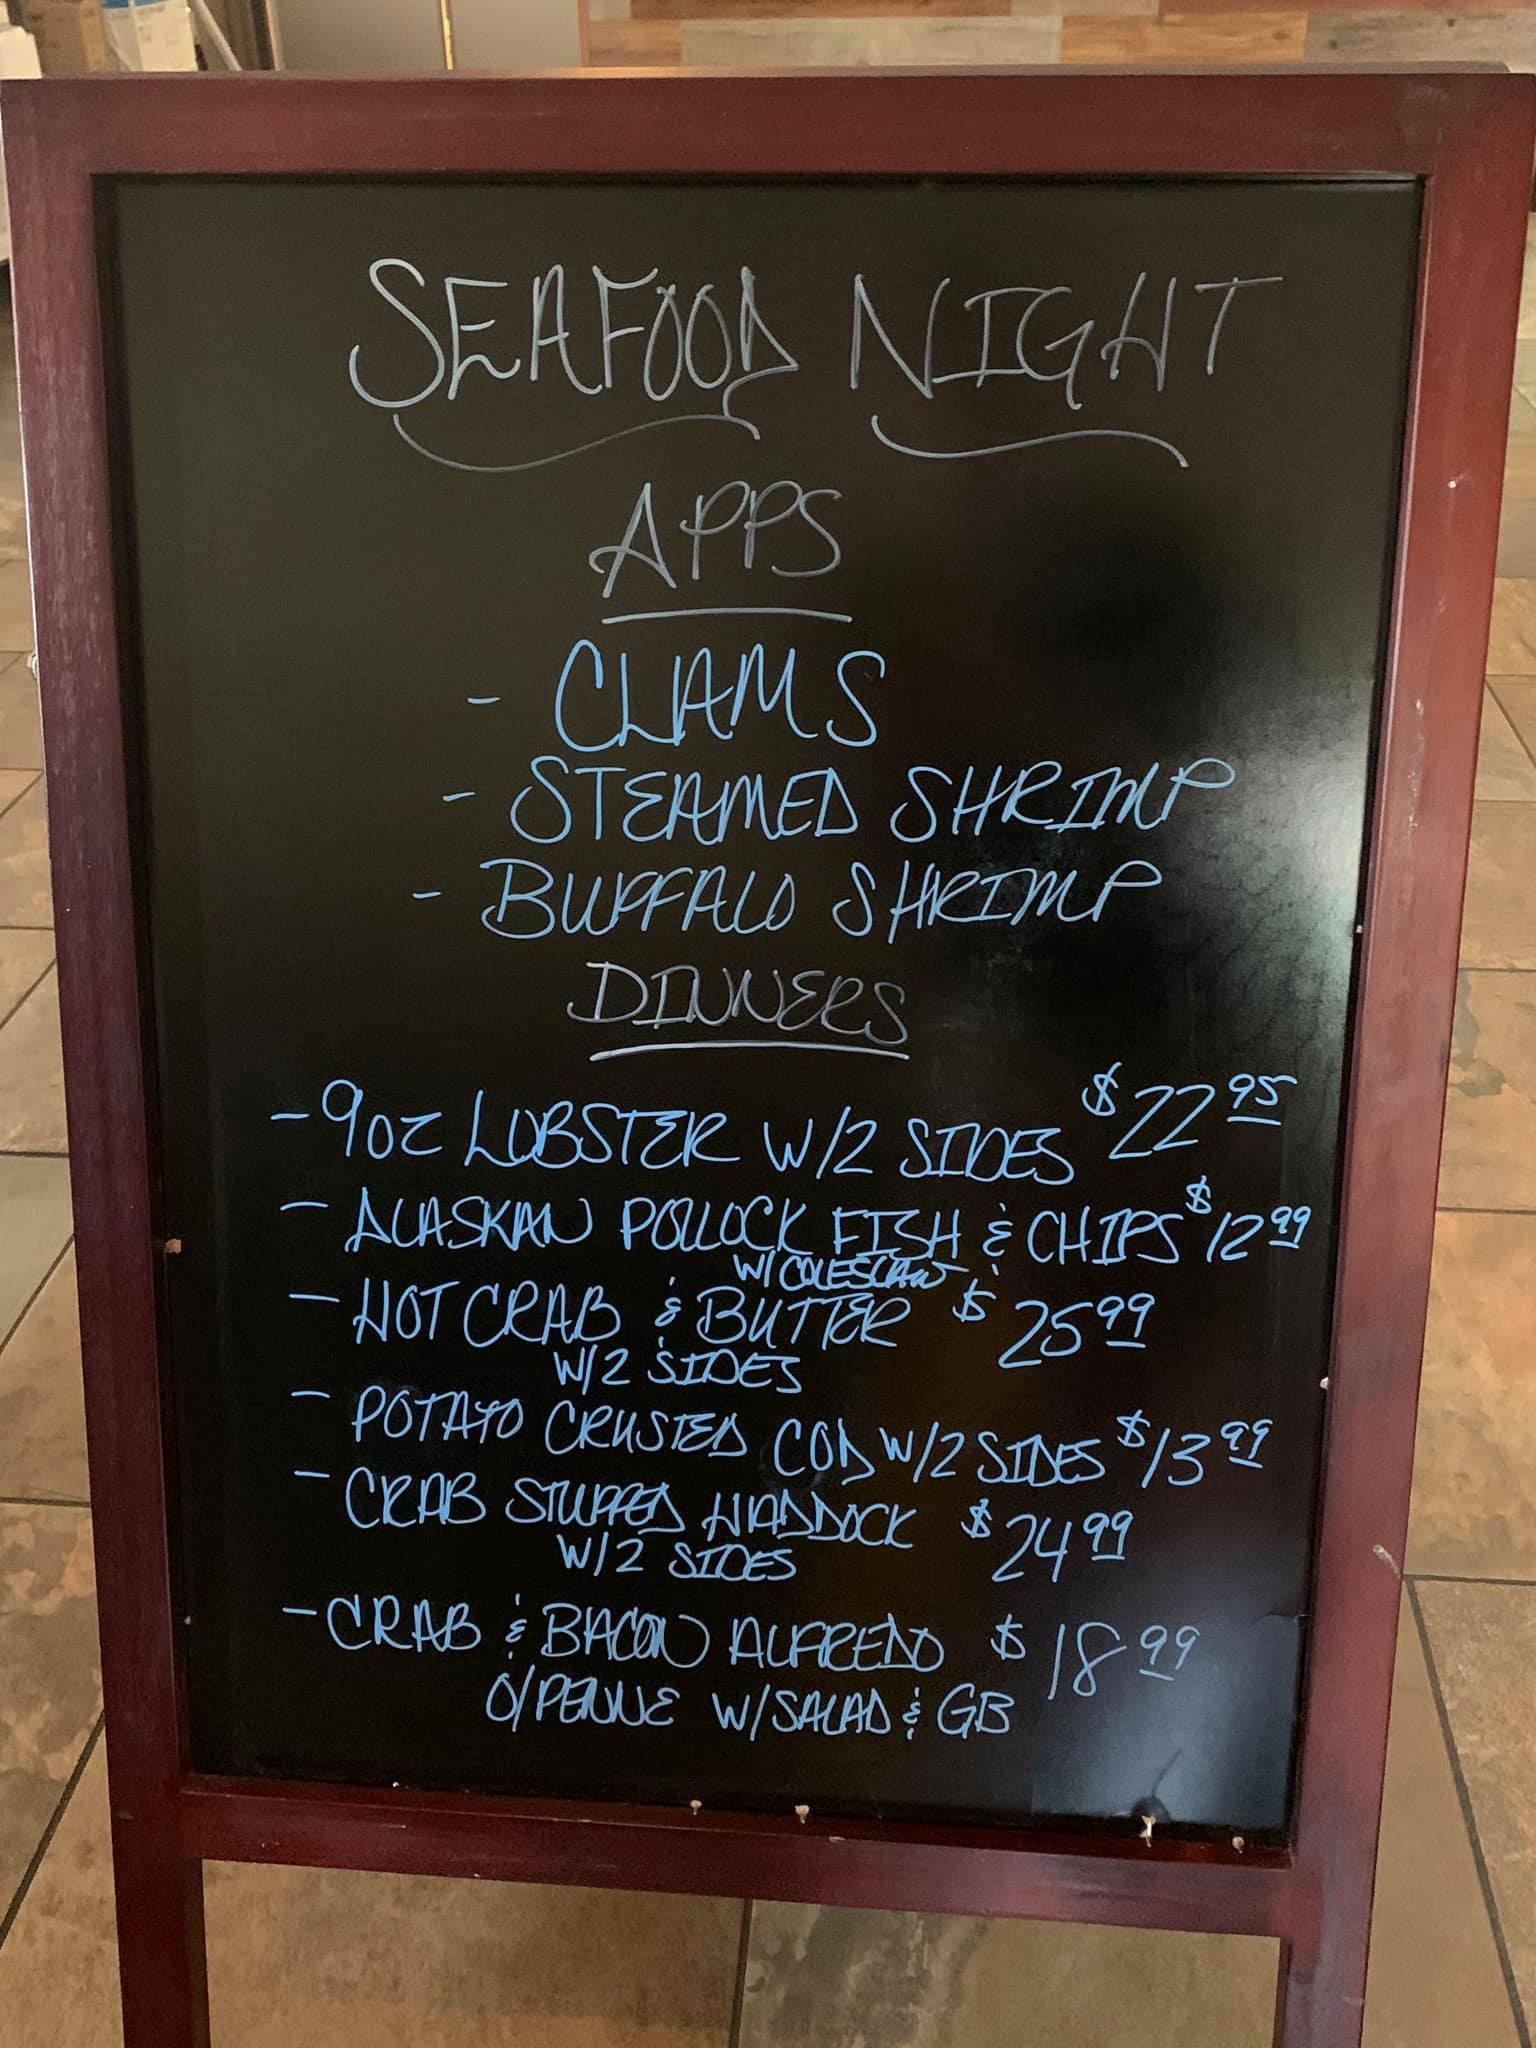 SEAFOOD NIGHT
APPS
- CLAMS
- STEAMED SHRIMP
- BUFFALO SHRIMP
DINNERS
- 9oz LOBSTER W/2 SIDES $22.95
- ALASKAN POLLOCK FISH & CHIPS $12.99
W/ COLESLAW
- HOT CRAB & BUTTER $25.99
W/2 SIDES
- POTATO CRUSTED COD W/2 SIDES $13.99
- CRAB STUFFED HADDOCK $24.99
W/2 SIDES
- CRAB & BACON ALFREDO $18.99
O/PENNE W/SALAD & GB